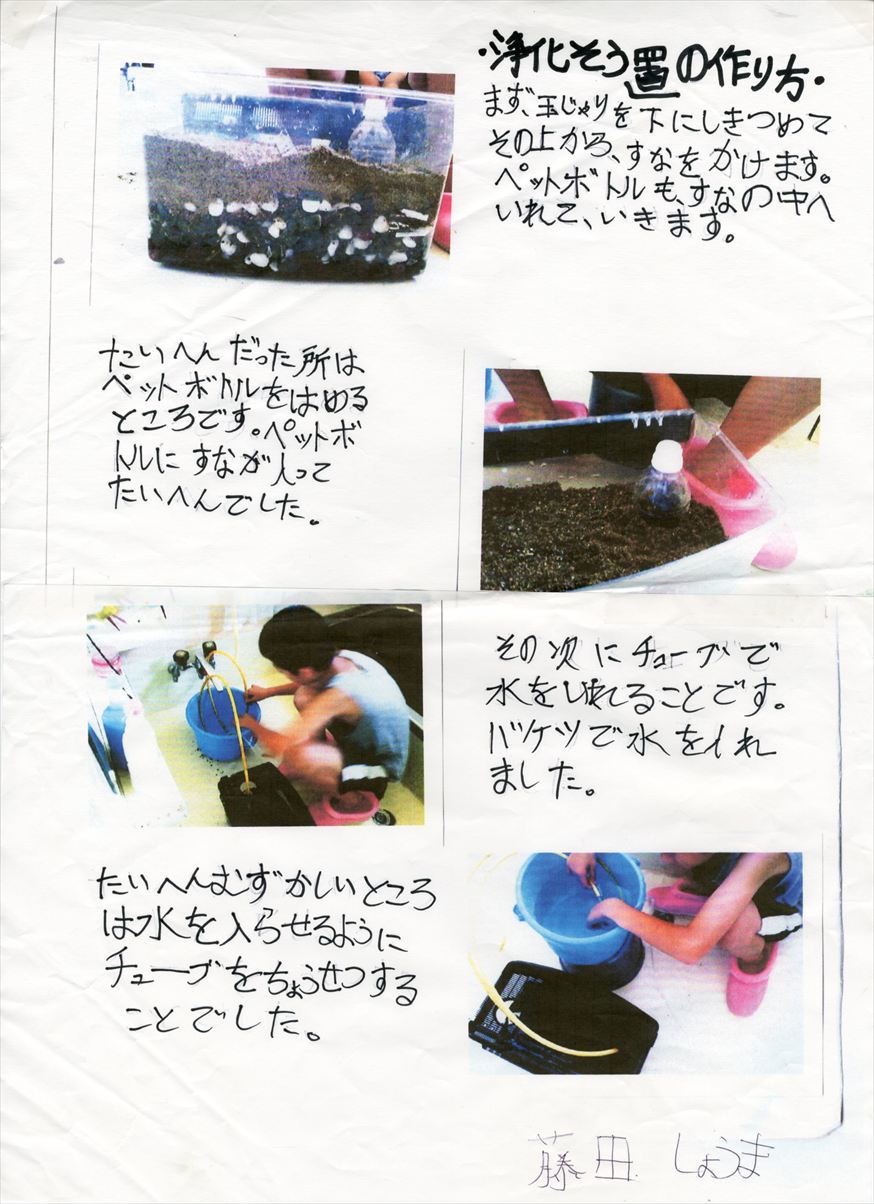 ・浄化そう置の作り方・
まず、玉じゃりを下にしきつめて
その上から、すなをかけます。
ペットボトルも、すなの中へ
いれて、いきます。
たいへんだった所は
ペットボトルをはめる
ところです。ペットボ
トルにすなが入って
たいへんでした。
その次にチューブで
水をいれることです。
バケツで水をいれ
ました。
たいへんむずかしいところ
は水を入らせるように
チューブをちょうせつする
ことでした。
藤田 しょうま